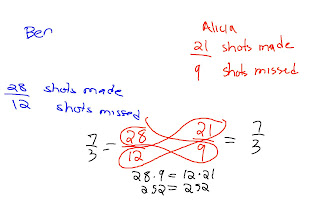 Ben
Alicia
21 shots made
9 shots missed
28 shots made
12 shots missed
7/3 = 28/12 21/9 = 7/3
28·9 = 12·21
252 = 252